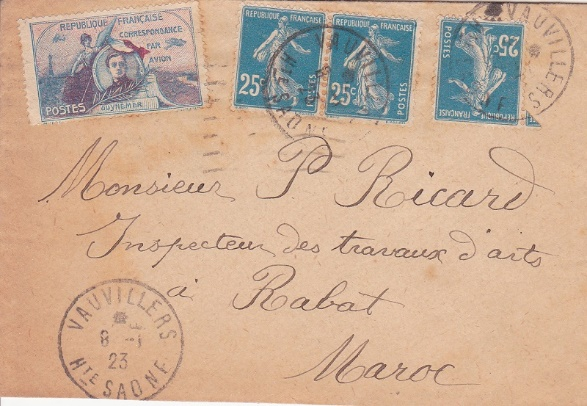 REPUBLIQUE FRANÇAISE
CORRESPONDANCE
PAR
AVION
POSTES
GUYNEMER
REPUBLIQUE FRANÇAISE
25c
POSTES
REPUBLIQUE FRANÇAISE
25c
POSTES
REPUBLIQUE FRANÇAISE
25c
POSTES
VAUVILLERS
HTE SAONE
VAUVILLERS
Monsieur P Ricard
Inspecteur des travaux d'arts
à Rabat
Maroc
VAUVILLERS
8 -1
23
HTE SAONE